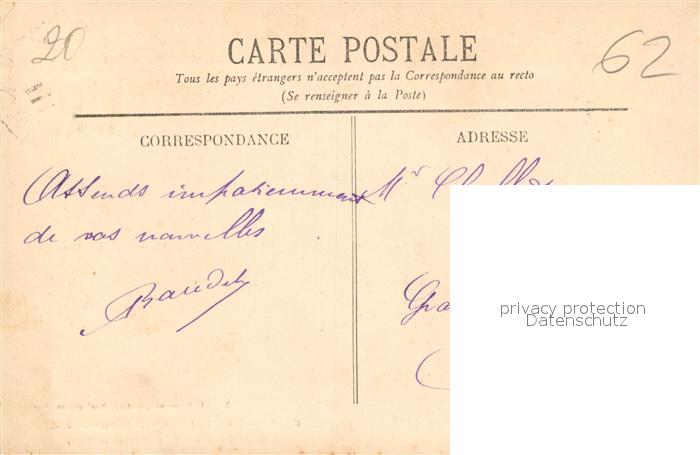 20
62
CARTE POSTALE
Tous les pays étrangers n'acceptent pas la Correspondance au recto
(Se renseigner à la Poste)
CORRESPONDANCE
Attends impatiemment
de vos nouvelles
ADRESSE
Mr
privacy protection
Datenschutz